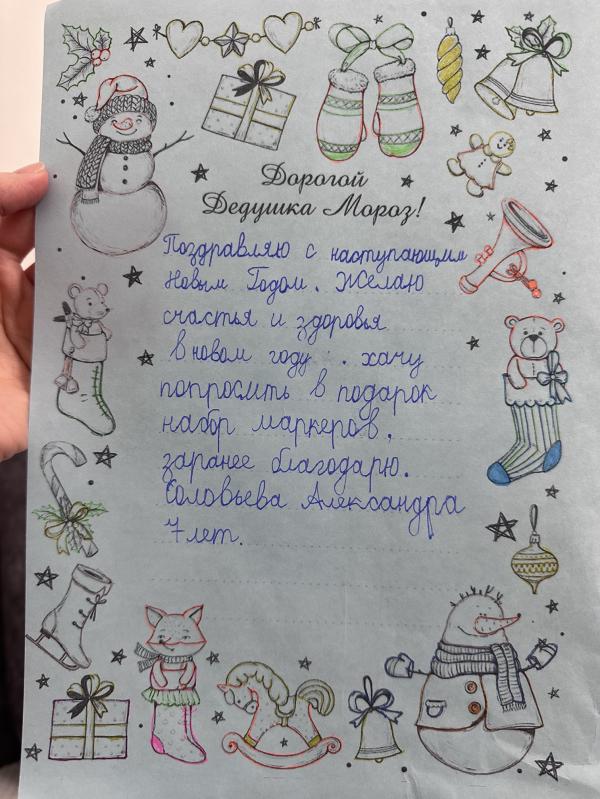 Дорогой
Дедушка Мороз!
Поздравляю с наступающим
Новым Годом. Желаю
счастья и здоровья
в новом году . хачу
попросить в подарок
набор маркеров.
заранее благодарю.
Соловьева Александра
7 лет.